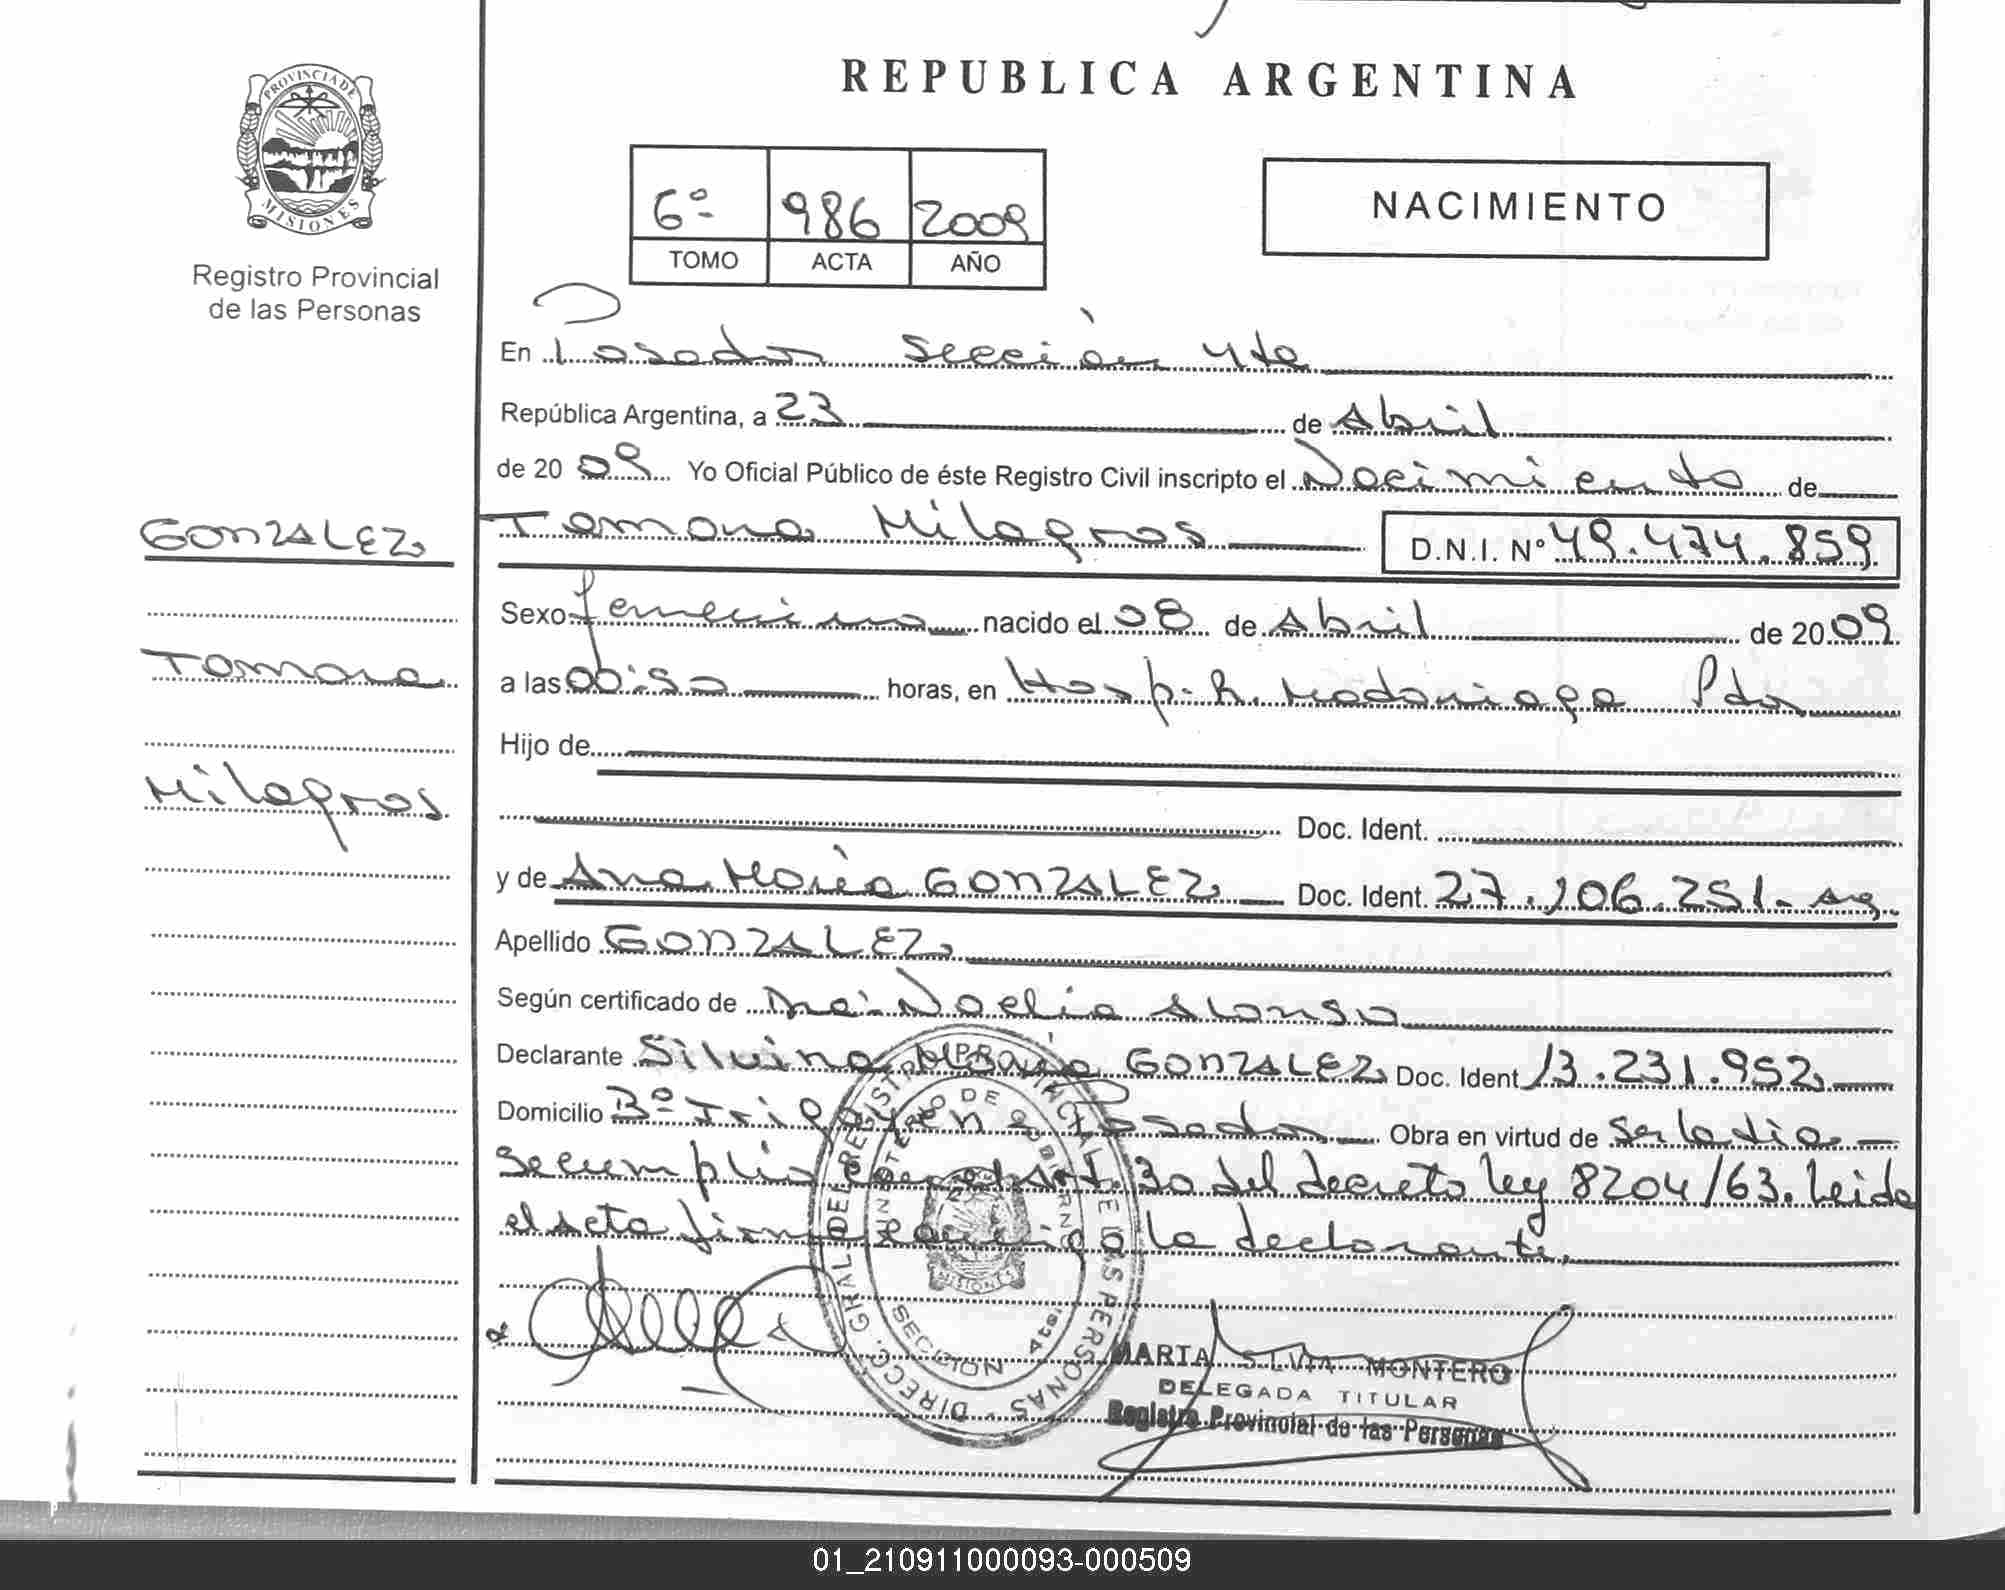 REPUBLICA ARGENTINA
PROVINCIA DE MISIONES
Registro Provincial
de las Personas
6º 986 2009
TOMO ACTA AÑO
NACIMIENTO
En Posadas Sección 4ta
República Argentina, a 23 de Abril
de 2009 Yo Oficial Público de éste Registro Civil inscripto el Nacimiento de
GONZALEZ
Tamara Milagros D.N.I. Nº 49.474.859
Sexo femenino nacido el 08 de Abril de 2009
Tamara
a las 00:50 horas, en Hosp. R. Madariaga Pdas
Hijo de
Milagros
Doc. Ident.
y de Ana María GONZALEZ Doc. Ident. 27.106.251- Arg.
Apellido GONZALEZ
Según certificado de Noelia Alonso
Declarante Silvina GONZALEZ Doc. Ident 13.231.952
Domicilio Bº Irigoyen Posadas Obra en virtud de ser la tía
Se cumplió con el art. 30 del decreto ley 8204/63. Leída
el acta firma la declarante.
DIRECC. GRAL DEL REGISTRO PROVINCIAL DE LAS PERSONAS
MINISTERIO DE GOBIERNO
MISIONES
SECCION 4ta
MARTA SILVIA MONTERO
DELEGADA TITULAR
Registro Provincial de las Personas
01_210911000093-000509